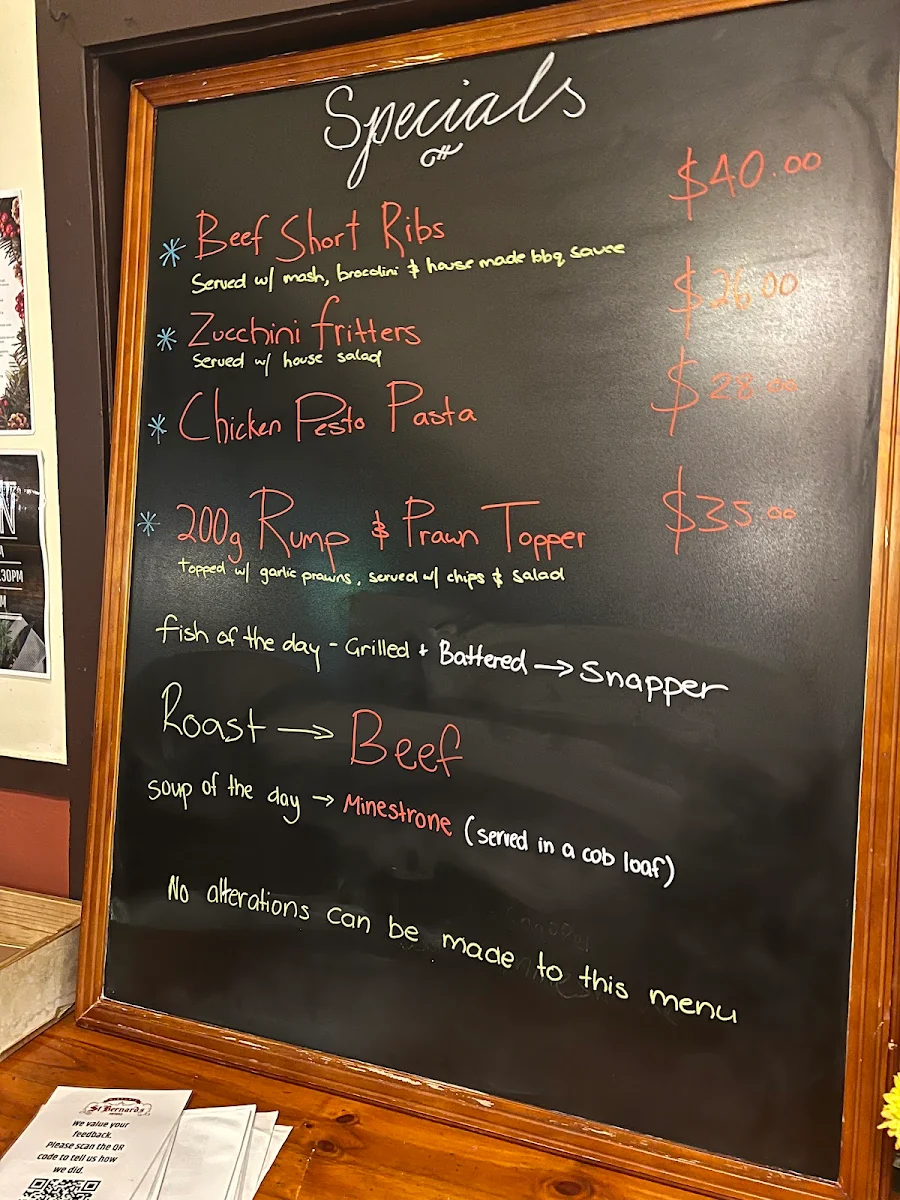 Specials
* Beef Short Ribs $40.00
Served w/ mash, brocolini & house made bbq sauce
* Zucchini fritters $26.00
Served w/ house salad
* Chicken Pesto Pasta $28.00
* 200g Rump & Prawn Topper $35.00
topped w/ garlic prawns, served w/ chips & salad
fish of the day - Grilled + Battered → Snapper
Roast → Beef
soup of the day → Minestrone (served in a cob loaf)
No alterations can be made to this menu
N
.30PM
St Bernards
We value your
feedback.
Please scan the QR
code to tell us how
we did.